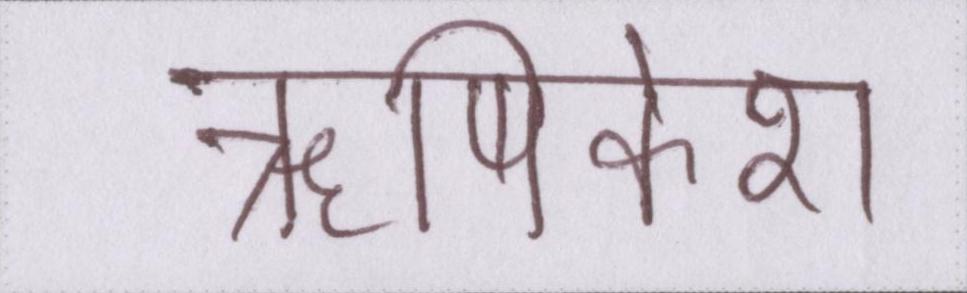 ऋषिकेश